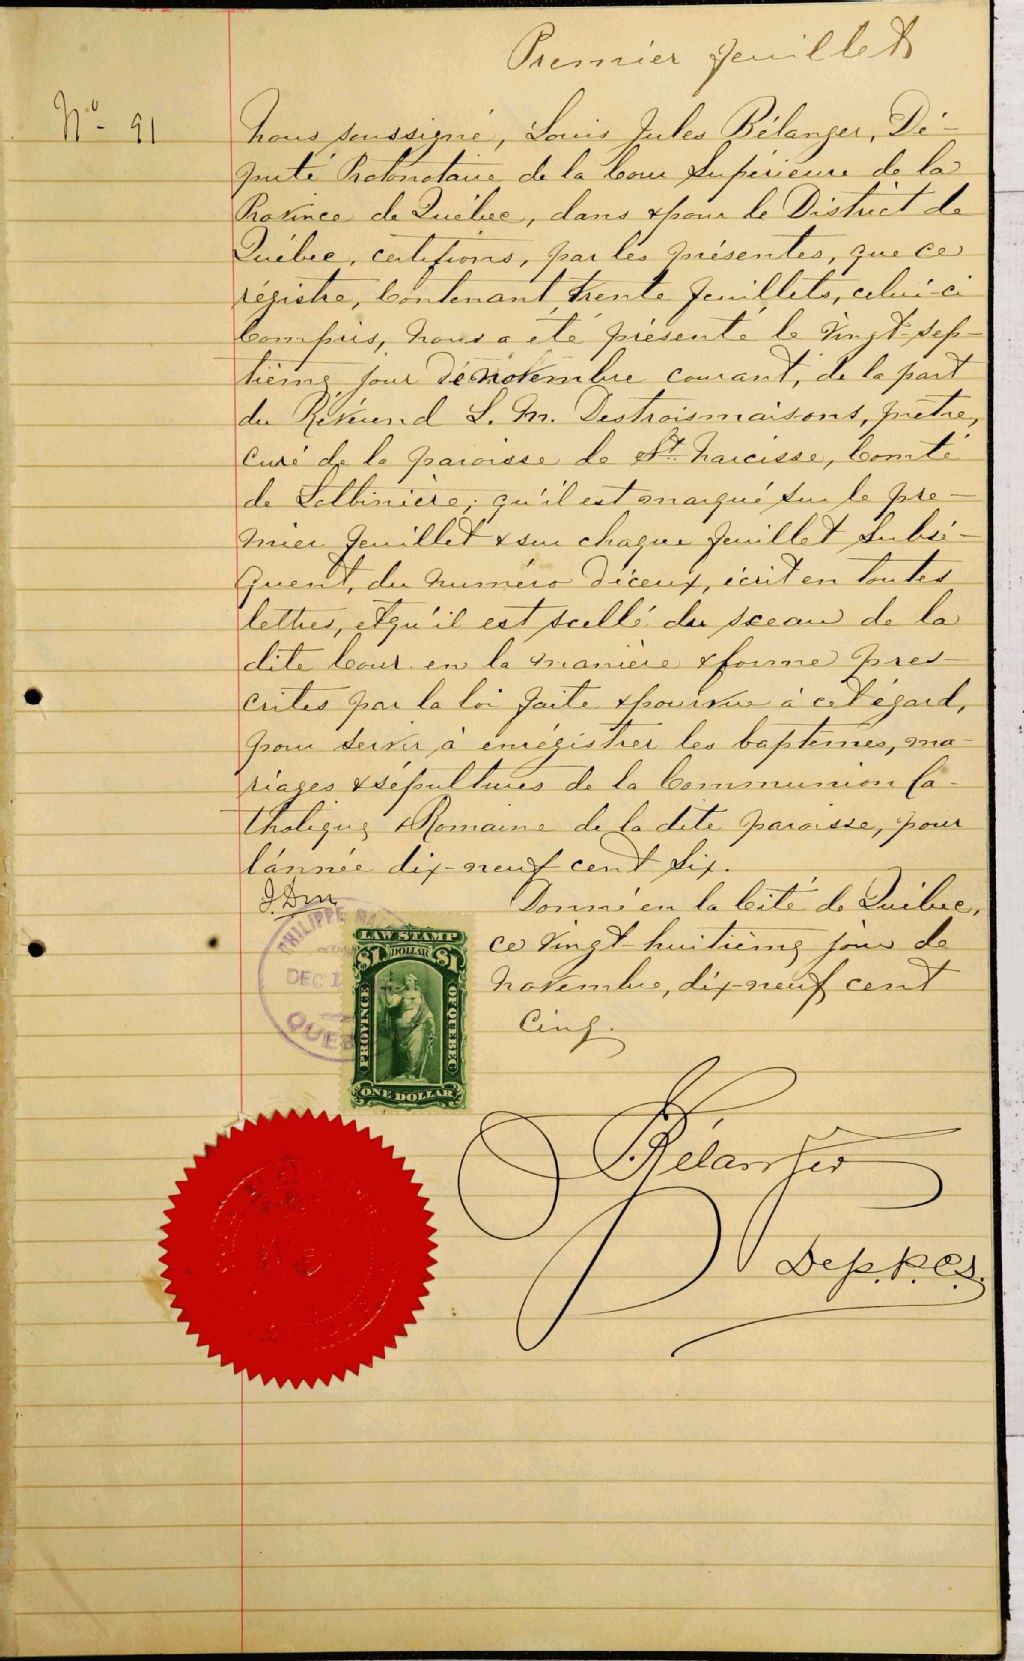 Premier feuillet
No- 91
Nous soussigné, Louis Jules Bélanger, Dé-
puté Protonotaire de la Cour Supérieure de la
Province de Québec, dans & pour le District de
Québec, certifions, par les présentes, que ce
régistre, Contenant trente feuillets, celui-ci
Compris, nous a été présenté le vingt-sep-
tième jour de novembre courant, de la part
du Révérend L. M. Destroismaisons, prêtre,
curé de la paroisse de St. Narcisse, Comté
de Lotbinière; qu'il est marqué sur le pre-
mier feuillet & sur chaque feuillet Subsé-
quent, du numéro d'iceux, écrit en toutes
lettres, et qu'il est scellé du sceau de la
dite Cour en la manière & forme pres-
crites par la loi faite & pourvue à cet égard,
pour servir à enrégistrer les baptemes, ma-
riages & sépultures de la Communion Ca-
tholique & Romaine de la dite paroisse, pour
l'année dix-neuf cent six.
Donné en la Cité de Québec,
ce vingt-huitième jour de
novembre, dix-neuf cent
Cinq.
PHILIPPE
DEC 1
QUEB
LAW STAMP
$1 DOLLAR $1
PROVINCE
OF QUEBEC
ONE DOLLAR
Bélanger
Dep. P.C.S.